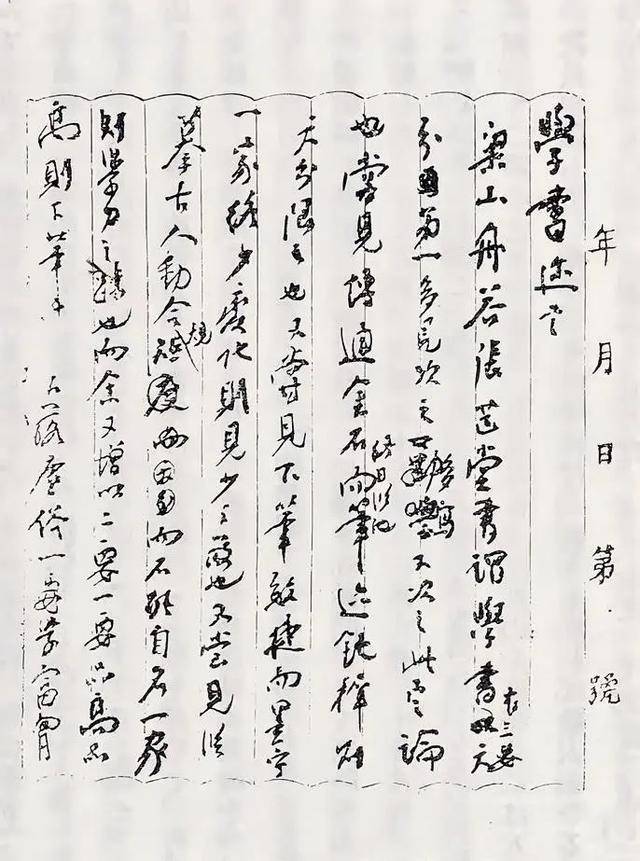 年月日第號
學書迩言
梁山舟答張芑堂書謂學書有三要天
分第一多見次之多寫又次之此定論
也嘗見博通金石而終日臨池筆迹鈍稚則
天分限之也又嘗見下筆敏捷而墨守
一家終少變化則見少之故也又嘗見臨
摹古人動合規度而不能自名一家
則學力之也而余又增以二要一要品高品
高則下筆不落塵俗一要學富胸